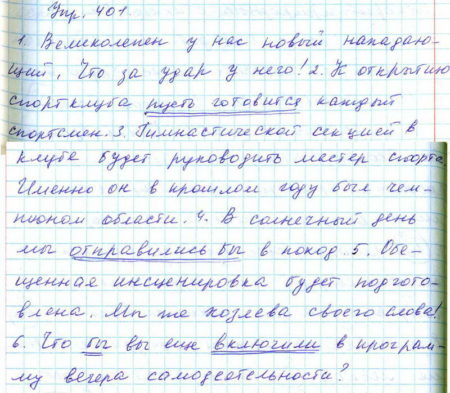 Упр. 401
1. Великолепен у нас новый нападаю-
щий. Что за удар у него! 2. К открытию
спортклуба пусть готовится каждый
спортсмен. 3. Гимнастической секцией в
клубе будет руководить мастер спорта.
Именно он в прошлом году был чем-
пионом области. 4. В солнечный день
мы отправились бы в поход. 5. Обе-
щенная инсценировка будет подгото-
влена. Мы же хозяева своего слова!
6. Что бы вы еще включили в програм-
му вечера самодеятельности?